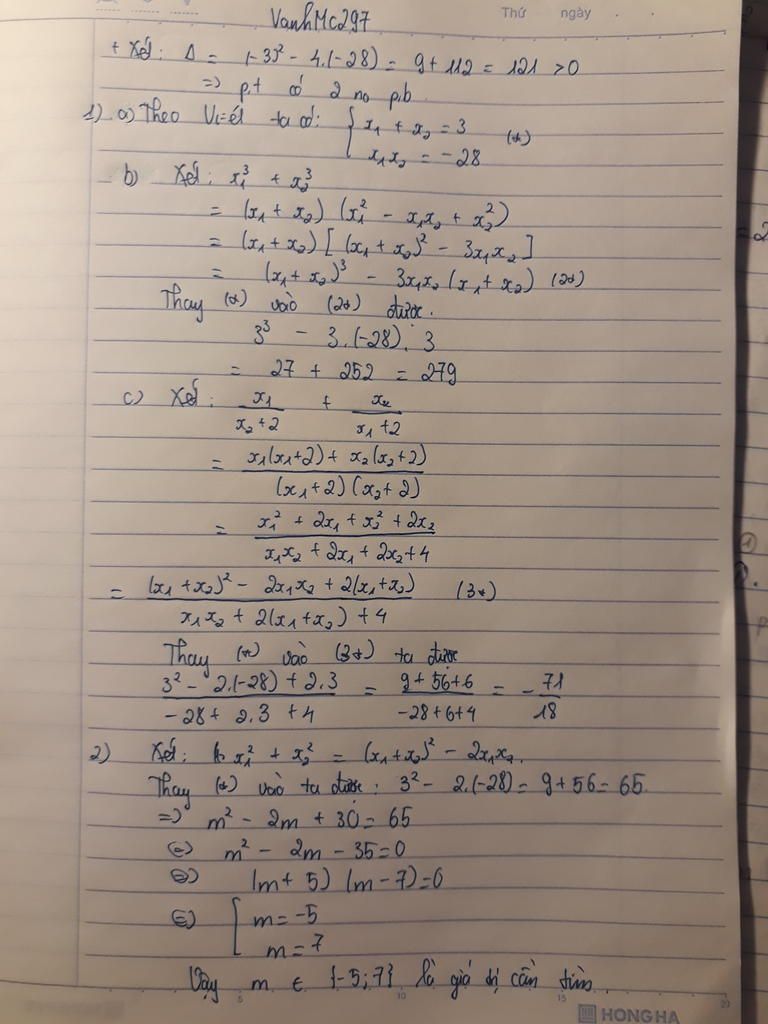 VanhMc297
Thứ ngày
+ Xét: Δ = (-3)² - 4.(-28) = 9 + 112 = 121 > 0
=> p.t có 2 no p.b
1) a) Theo Vi-ét ta có: { x₁ + x₂ = 3 (*)
x₁x₂ = -28
b) Xét: x₁³ + x₂³
= (x₁ + x₂) (x₁² - x₁x₂ + x₂²)
= (x₁ + x₂) [(x₁ + x₂)² - 3x₁x₂]
= (x₁ + x₂)³ - 3x₁x₂ (x₁ + x₂) (2*)
Thay (*) vào (2*) được.
3³ - 3.(-28). 3
= 27 + 252 = 279
c) Xét: x₁/(x₂+2) + x₂/(x₁+2)
= (x₁(x₁+2) + x₂(x₂+2))/((x₁+2)(x₂+2))
= (x₁² + 2x₁ + x₂² + 2x₂)/(x₁x₂ + 2x₁ + 2x₂ + 4)
= ((x₁ + x₂)² - 2x₁x₂ + 2(x₁+x₂))/(x₁x₂ + 2(x₁+x₂) + 4) (3*)
Thay (*) vào (3*) ta được
(3² - 2.(-28) + 2.3)/(-28 + 2.3 + 4) = (9+56+6)/(-28+6+4) = -71/18
2) Xét: x₁² + x₂² = (x₁+x₂)² - 2x₁x₂.
Thay (*) vào ta được: 3² - 2.(-28) = 9 + 56 = 65.
=> m² - 2m + 30 = 65
(=) m² - 2m - 35 = 0
(=) (m + 5) (m - 7) = 0
(=) [ m = -5
m = 7
Vậy m ∈ {-5; 7} là giá trị cần tìm.
5 10 15 20
HONG HA